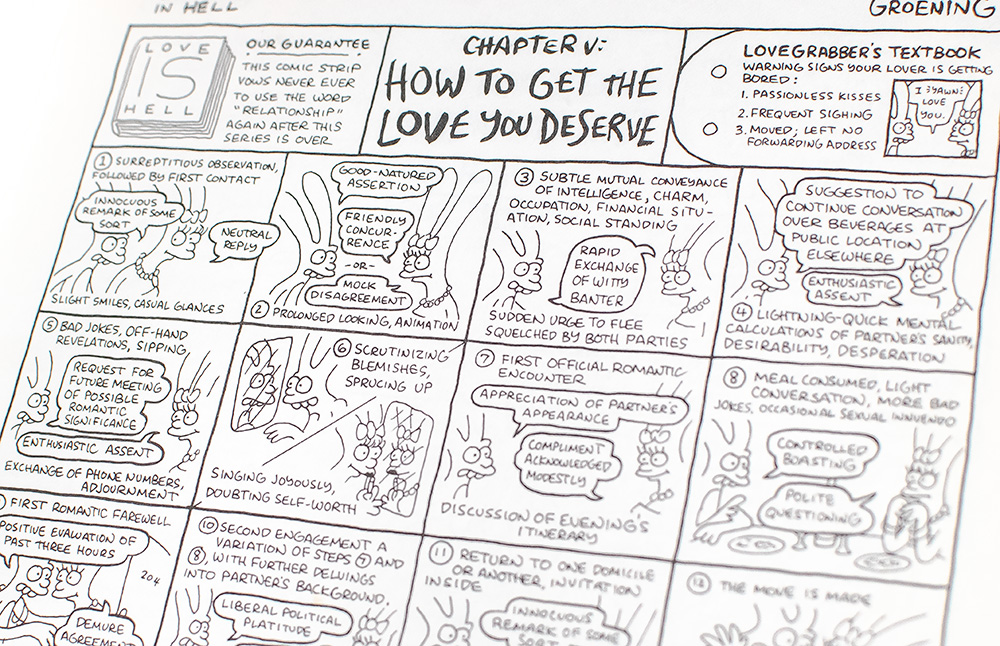 IN HELL
GROENING
LOVE
IS
HELL
OUR GUARANTEE
THIS COMIC STRIP
VOWS NEVER EVER
TO USE THE WORD
"RELATIONSHIP"
AGAIN AFTER THIS
SERIES IS OVER
CHAPTER V:
HOW TO GET THE
LOVE YOU DESERVE
LOVEGRABBER'S TEXTBOOK
WARNING SIGNS YOUR LOVER IS GETTING
BORED:
1. PASSIONLESS KISSES
2. FREQUENT SIGHING
3. MOVED; LEFT NO
FORWARDING ADDRESS
I (YAWN)
LOVE
YOU.
1 SURREPTITIOUS OBSERVATION,
FOLLOWED BY FIRST CONTACT
INNOCUOUS
REMARK OF SOME
SORT
NEUTRAL
REPLY
SLIGHT SMILES, CASUAL GLANCES
GOOD-NATURED
ASSERTION
FRIENDLY
CONCUR-
RENCE
-OR-
MOCK
DISAGREEMENT
2 PROLONGED LOOKING, ANIMATION
3 SUBTLE MUTUAL CONVEYANCE
OF INTELLIGENCE, CHARM,
OCCUPATION, FINANCIAL SITU-
ATION, SOCIAL STANDING
RAPID
EXCHANGE
OF WITTY
BANTER
SUDDEN URGE TO FLEE
SQUELCHED BY BOTH PARTIES
SUGGESTION TO
CONTINUE CONVERSATION
OVER BEVERAGES AT
PUBLIC LOCATION
ELSEWHERE
ENTHUSIASTIC
ASSENT
4 LIGHTNING-QUICK MENTAL
CALCULATIONS OF PARTNER'S SANITY,
DESIRABILITY, DESPERATION
5 BAD JOKES, OFF-HAND
REVELATIONS, SIPPING,
REQUEST FOR
FUTURE MEETING
OF POSSIBLE
ROMANTIC
SIGNIFICANCE
ENTHUSIASTIC ASSENT
EXCHANGE OF PHONE NUMBERS,
ADJOURNMENT
6 SCRUTINIZING
BLEMISHES,
SPRUCING UP
SINGING JOYOUSLY,
DOUBTING SELF-WORTH
7 FIRST OFFICIAL ROMANTIC
ENCOUNTER
APPRECIATION OF PARTNER'S
APPEARANCE
COMPLIMENT
ACKNOWLEDGED
MODESTLY
DISCUSSION OF EVENING'S
ITINERARY
8 MEAL CONSUMED, LIGHT
CONVERSATION, MORE BAD
JOKES, OCCASIONAL SEXUAL INNUENDO
CONTROLLED
BOASTING
POLITE
QUESTIONING
FIRST ROMANTIC FAREWELL
POSITIVE EVALUATION OF
PAST THREE HOURS
204
DEMURE
AGREEMENT
10 SECOND ENGAGEMENT A
VARIATION OF STEPS 7 AND
8, WITH FURTHER DELVINGS
INTO PARTNER'S BACKGROUND.
LIBERAL POLITICAL
PLATITUDE
11 RETURN TO ONE DOMICILE
OR ANOTHER, INVITATION
INSIDE
INNOCUOUS
REMARK OF SOME
SORT
12 THE MOVE IS MADE